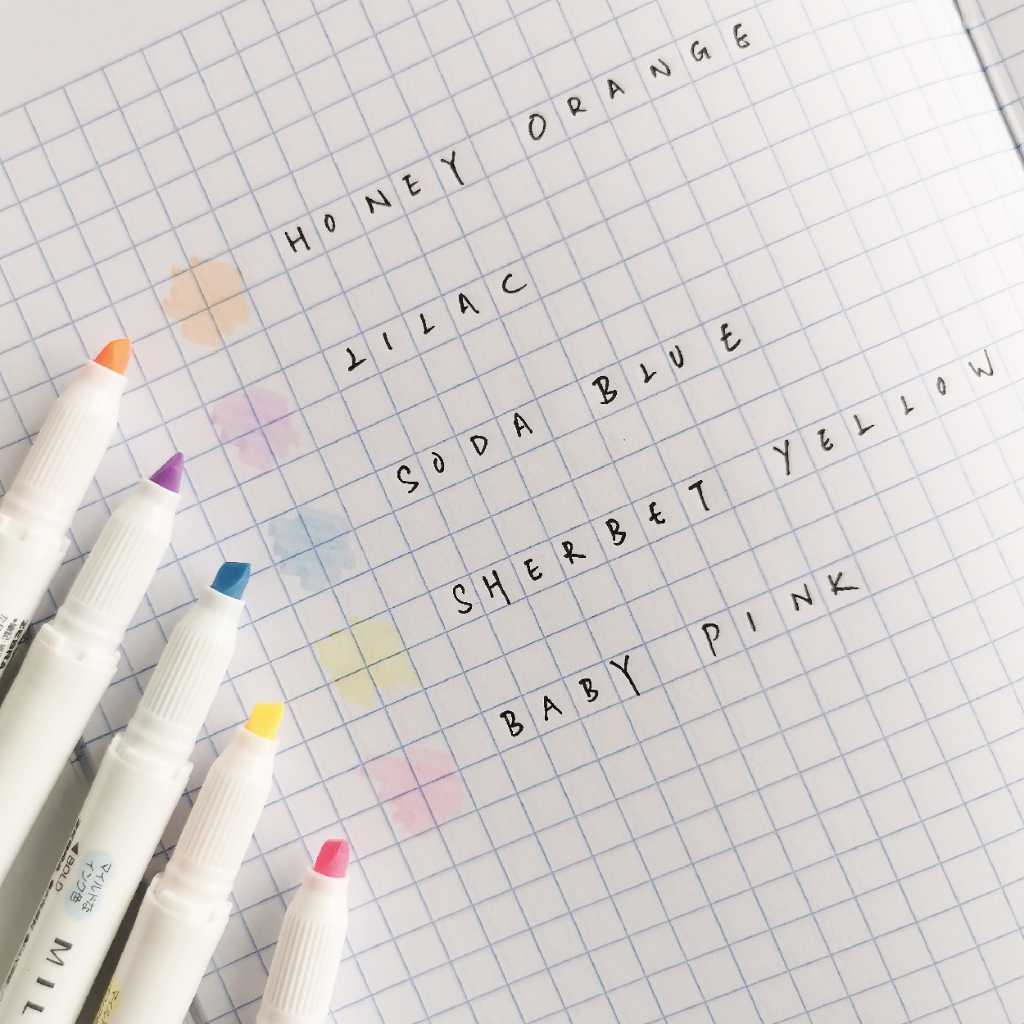 HONEY ORANGE
LILAC
SODA BLUE
SHERBET YELLOW
BABY PINK
ZEBRA
◀BOLD
マイルドな
インク色
MIL